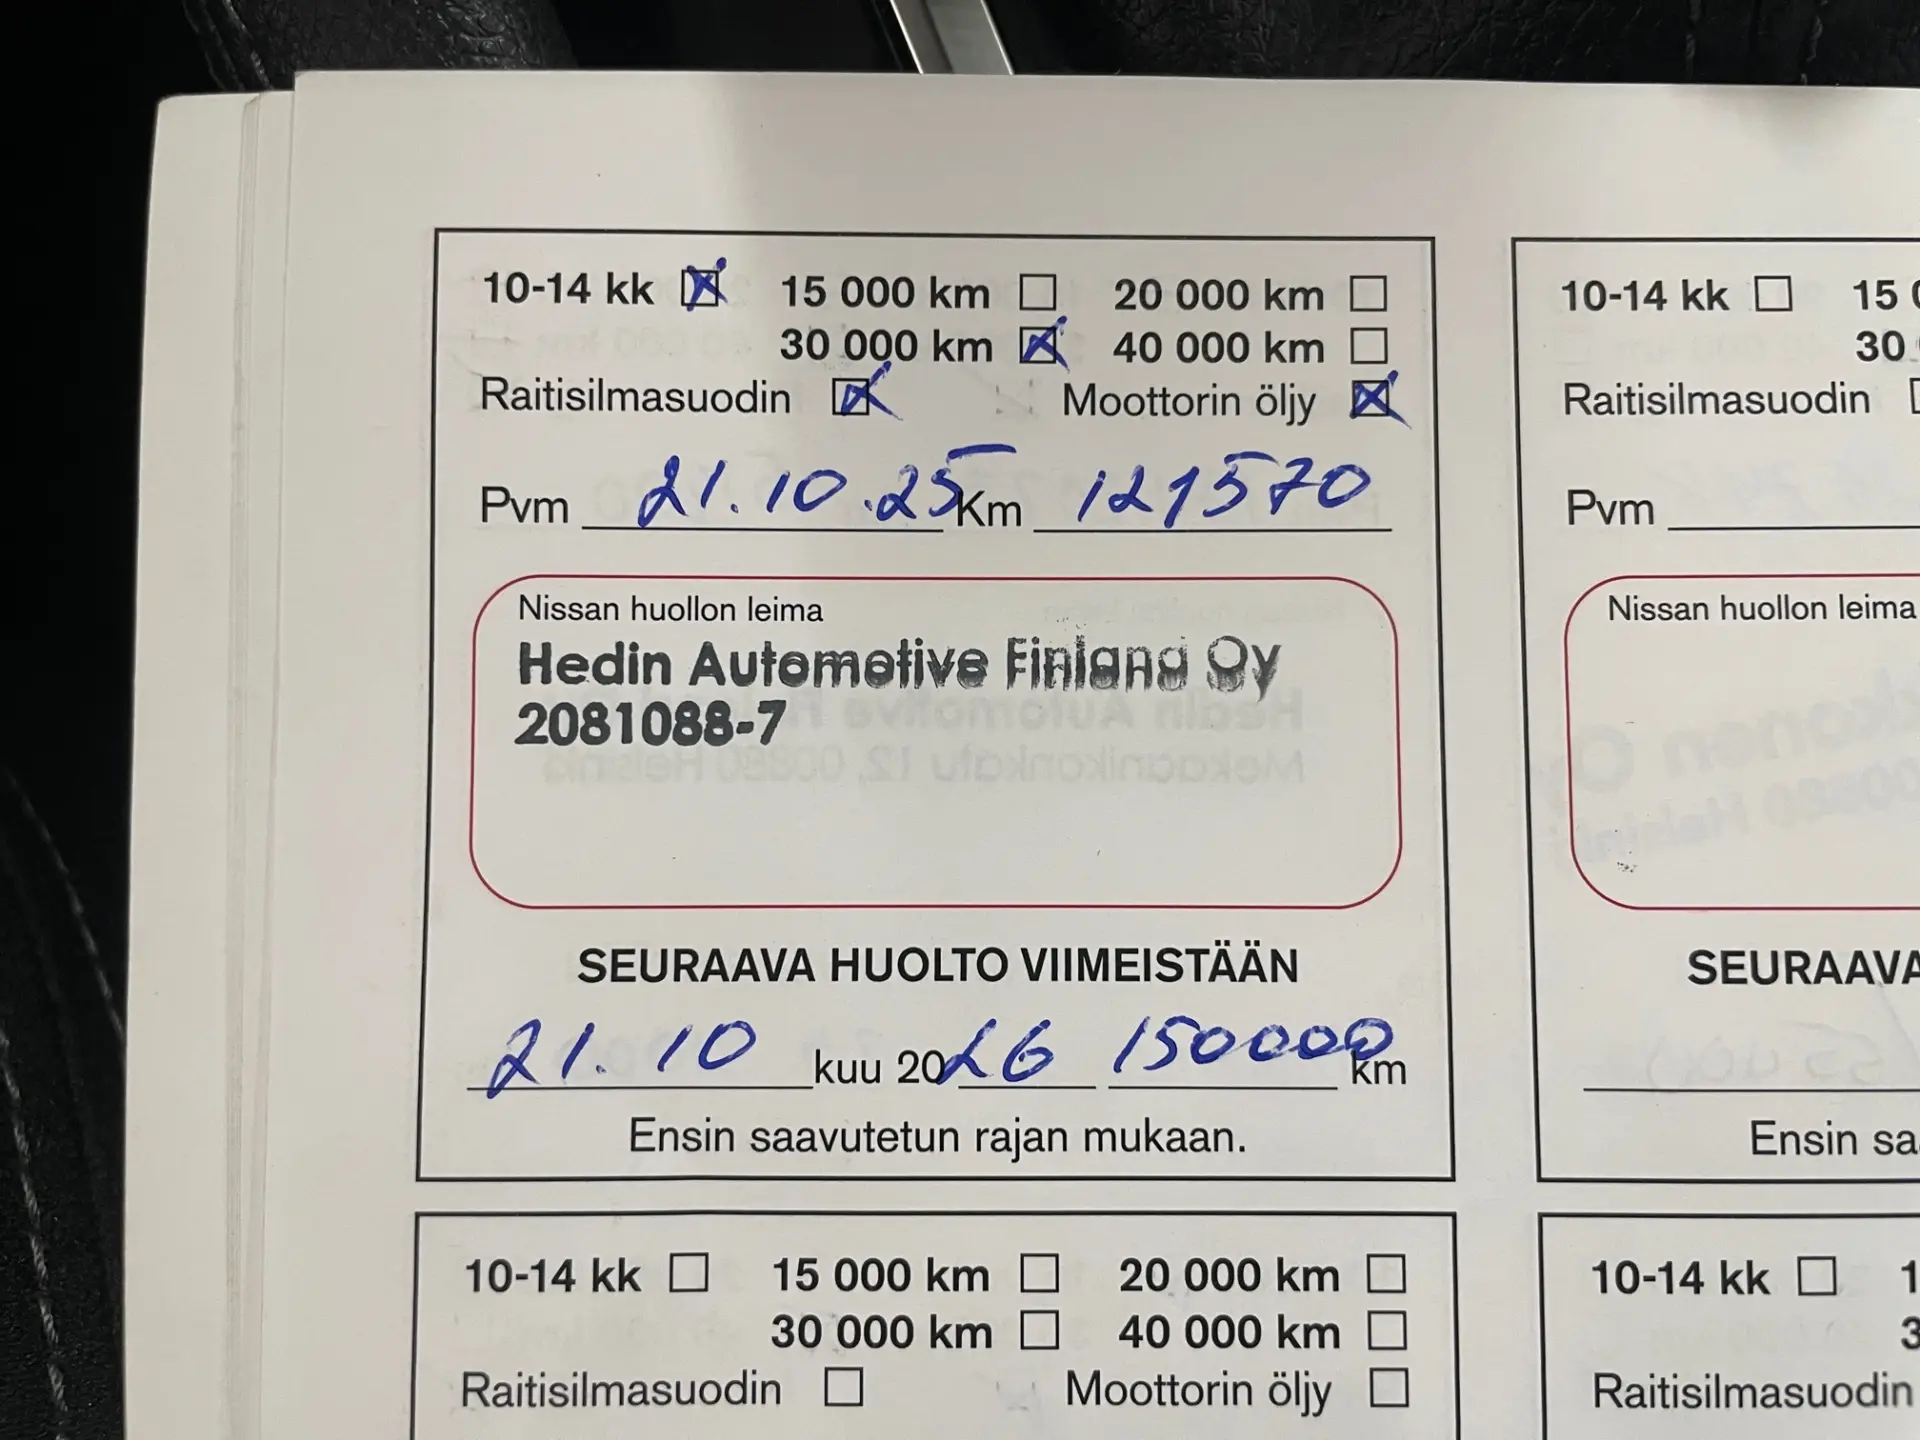 10-14 kk 15 000 km 20 000 km
30 000 km 40 000 km
Raitisilmasuodin Moottorin öljy
Pvm 21.10.25 Km 121570
Nissan huollon leima
Hedin Automotive Finland Oy
2081088-7
SEURAAVA HUOLTO VIIMEISTÄÄN
21.10 kuu 2026 150000 km
Ensin saavutetun rajan mukaan.
10-14 kk 15 0
30
Raitisilmasuodin
Pvm
Nissan huollon leima
SEURAAVA
Ensin sa
10-14 kk 15 000 km 20 000 km
30 000 km 40 000 km
Raitisilmasuodin Moottorin öljy
10-14 kk 1
3
Raitisilmasuodin